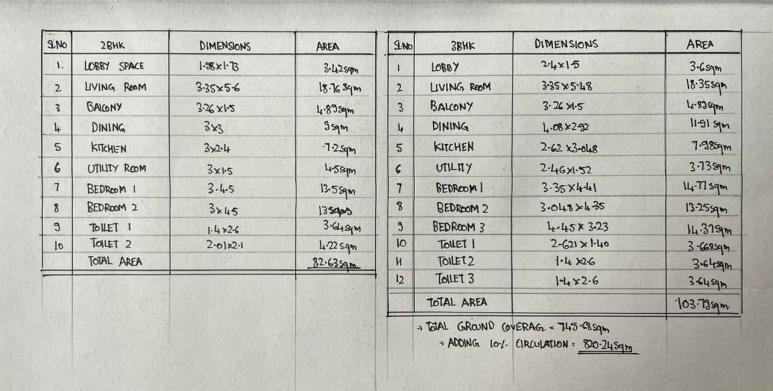 SL.NO 2BHK DIMENSIONS AREA
1. LOBBY SPACE 1.98x1.73 3.42sqm
2 LIVING ROOM 3.35x5.6 18.76sqm
3 BALCONY 3.26x1.5 4.89sqm
4 DINING 3x3 9sqm
5 KITCHEN 3x2.4 7.2sqm
6 UTILITY ROOM 3x1.5 4.5sqm
7 BEDROOM 1 3.4.5 13.5sqm
8 BEDROOM 2 3x4.5
9 TOILET 1 1.4x2.6 3.64sqm
10 TOILET 2 2.01x2.1 4.22sqm
TOTAL AREA 82.63sqm
SL.NO 3BHK DIMENSIONS AREA
1 LOBBY 2.4x1.5 3.6sqm
2 LIVING ROOM 3.35x5.48 18.35sqm
3 BALCONY 3.26x1.5 4.89sqm
4 DINING 4.08x2.92 11.91sqm
5 KITCHEN 2.62x3.048 7.985sqm
6 UTILITY 2.46x1.52 3.73sqm
7 BEDROOM 1 3.35x4.41 14.77sqm
8 BEDROOM 2 3.048x4.35 13.25sqm
9 BEDROOM 3 4.45x3.23 14.37sqm
10 TOILET 1 2.621x1.40 3.668sqm
11 TOILET 2 1.4x2.6 3.64sqm
12 TOILET 3 1.4x2.6 3.64sqm
TOTAL AREA 103.79sqm
→ TOTAL GROUND COVERAGE = 745.68sqm
→ ADDING 10% CIRCULATION = 820.24sqm